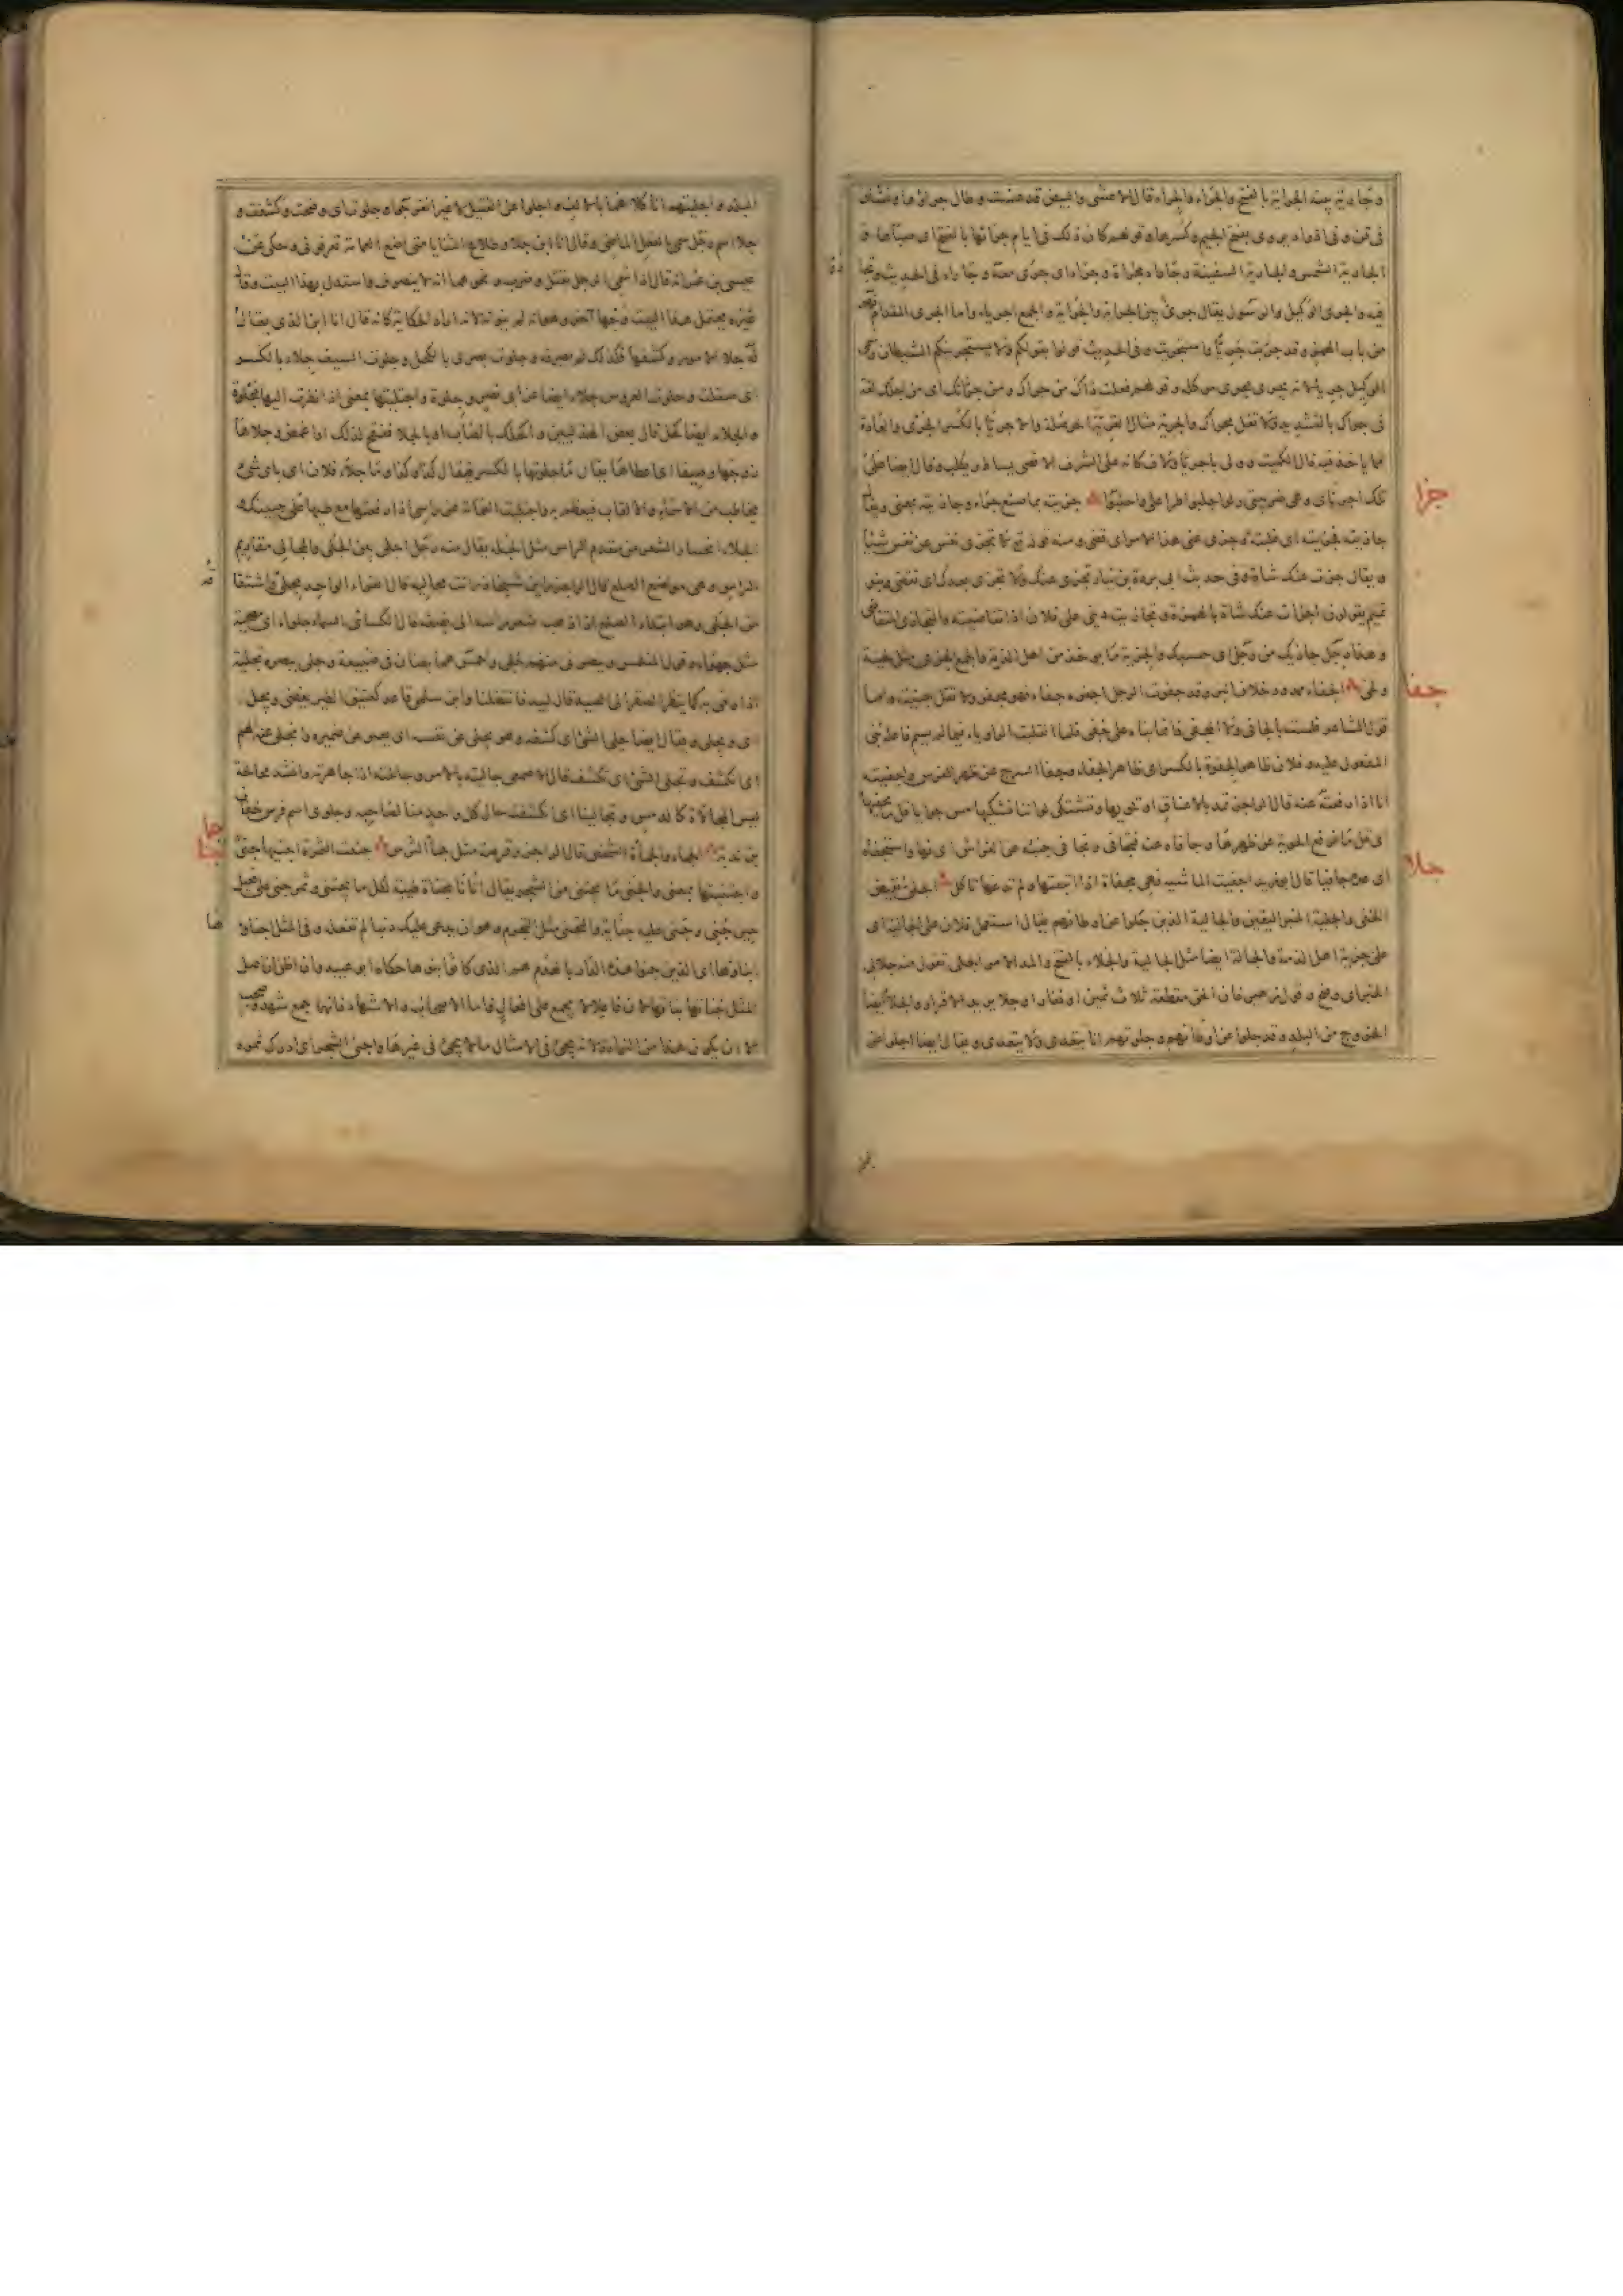 وجارية بينة الجراية بالفتح والجراء والجراء قال الاعشى والبيض قد عنست وطال جراؤها ونشأن
فى قن وفى اذواد يروى بفتح الجيم وكسرها وقولهم كان ذلك فى ايام جرائها بالفتح اى صباها و
الجارية الشمس والجارية السفينة وجاراه مجاراة وجراء اى جرى معه وجاراه فى الحديث وتجاروا
فيه والجرى الوكيل والرسول يقال جرى بين الجراية والجراية والجمع اجرياء واما الجرى المقدام فهو
من باب الهمز وقد جريت جريا واستجريت وفى الحديث قولوا بقولكم ولا يستجرينكم الشيطان وسمى
الوكيل جريا لانه يجرى مجرى موكله وقولهم فعلت ذاك من جراك ومن جرائك اى من اجلك لغة
فى جراك بالتشديد ولا تقل مجراك والجرية مثال القرية الحوصلة والاجريا بالكسر الجرى والعادة
مما ياخذ فيه قال الكميت وولى باجريا ولاف كانه على الشرف الاقصى يساط ويكلب وقال ايضا على
تلك اجرياى وهى ضريبتى ولو اجلبوا طرا على واحلبوا جزيته بما صنع جزاء وجازيته بمعنى ويقال
جازيته فجزيته اى غلبته وجزى عنى هذا الامر اى قضى ومنه قوله تع لا تجزى نفس عن نفس شيئا
ويقال جزت عنك شاة وفى حديث ابى بردة بن نيار تجزى عنك ولا تجزى بعدك اى تقضى وبنو
تميم يقولون اجزات عنك شاة بالهمزة وتجازيت دينى على فلان اذا تقاضيته والمتجازى المتقاضى
وهذا رجل جازيك من رجل اى حسبك والجزية ما يوخذ من اهل الذمة والجمع الجزى مثل لحية
ولحى الجفاء ممدود خلاف البر وقد جفوت الرجل اجفوه جفاء فهو مجفو ولا تقل جفيته واما
قول الشاعر فلست بالجافى ولا المجفى فانما بناه على جفى فلما انقلبت الواو ياء فيما لم يسم فاعله بنى
المفعول عليه وفلان ظاهر الجفوة بالكسر اى ظاهر الجفاء وجفا السرج عن ظهر الفرس واجفيته
انا اذا رفعته عنه قال الراجز تمد بالاعناق او تلويها وتشتكى لو اننا نشكيها مس حوايا قل ما نجفيها
اى قل ما نرفع الحوية عن ظهرها وجافاه عنه فتجافى وتجافى جنبه عن الفراش اى نبا واستجفاه
اى عده جافيا قال ابو زيد اجفيت الماشية فهى مجفاة اذا اتعبتها ولم تدعها تاكل الجلى نقيض
الخفى والجلية الخبر اليقين والجالية الذين جلوا عن اوطانهم يقال استعمل فلان على الجالية اى
على جزية اهل الذمة والجالة ايضا مثل الجالية والجلاء بالفتح والمد الامر الجلى تقول منه جلا لى
الخبر اى وضح وقول زهير فان الحق مقطعه ثلاث يمين او نفار او جلاء يريد الاقرار والجلاء ايضا
الخروج من البلد وقد جلوا عن اوطانهم وجلوتهم انا يتعدى ولا يتعدى ويقال ايضا اجلوا عن
جزا
جفا
جلا
البلد واجليتهم انا كلاهما بالالف واجلوا عن القتيل لا غير انفرجوا وجلوت اى وضحت وكشفت و
جلا اسم رجل سمى بالفعل الماضى وقال انا ابن جلا وطلاع الثنايا متى اضع العمامة تعرفونى وحكى عن
عيسى بن عمر انه قال اذا سمى الرجل بقتل وضرب ونحوهما انه لا ينصرف واستدل بهذا البيت وقال
غيره يحتمل هذا البيت وجها آخر وهو انه لم ينونه لانه اراد الحكاية كانه قال انا ابن الذى يقال
له جلا الامور وكشفها فلذلك لم يصرفه وجلوت بصرى بالكحل وجلوت السيف جلاء بالكسر
اى صقلت وجلوت العروس جلاء ايضا عن ابى نصر وجلوة واجتليتها بمعنى اذا نظرت اليها مجلوة
والجلاء ايضا كحل قال بعض الهذليين واكحلك بالصاب او بالجلا ففتح لذلك او غمض وجلاها
زوجها وصيفا اى اعطاها يقال ما جلوتها بالكسر فيقال كذا وكذا وما جلاء فلان اى باى شئ
يخاطب من الاسماء والالقاب فيعظم به واجتليت العمامة عن راسى اذا رفعتها مع طيها على جبينك
الجلاء انحسار الشعر من مقدم الراس مثل الجله يقال منه رجل اجلى بين الجلى والمجالى مقاديم
الراس وهى مواضع الصلع قال الراجز راين شيخا ذرئت مجاليه قال الفراء الواحد مجلى واشتقاقه
من الجلى وهو ابتداء الصلع اذا ذهب شعر راسه الى نصفه قال الكسائى السماء جلواء اى مصحية
مثل جهواء وقول المتلمس ويصرنى منهم جلى واحمس هما بطنان فى ضبيعة وجلى ببصره تجلية
اذا رمى به كما ينظر الصقر الى الصيد قال لبيد فانتضلنا وابن سلمى قاعد كعتيق الطير يغضى ويجل
اى ويجلى ويقال ايضا جلى الشئ اى كشفه وهو يجلى عن نفسه اى يعبر عن ضميره وانجلى عنه الهم
اى انكشف وتجلى الشئ اى تكشف قال الاصمعى جاليته بالامر وجالحته اذا جاهرته وانشد مجالحة
ليس المجالاة كالدمس وتجالينا اى انكشف حال كل واحد منا لصاحبه وجلوى اسم فرس خفاف
بن ندبة الجماء والجماءة الشخص قال الراجز وقرصة مثل جماء الترس جنيت الثمرة اجنيها جنى
واجتنيتها بمعنى والجنى ما يجتنى من الشجر يقال اتانا بجناة طيبة لكل ما يجتنى وثمر جنى على فعيل
حين جنى وجنى عليه جناية والتجنى مثل التجرم وهو ان يدعى عليك ذنبا لم تفعله وفى المثل اجناؤها
ابناؤها اى الذين جنوا هذه الدار بالهدم هم الذى كانوا بنوها حكاه ابو عبيد وانا اظن ان اصل
المثل جناتها بناتها لان فاعلا لا يجمع على افعال فاما الاصحاب والاشهاد فانما جمع شهد وصحب
الا ان يكون هذا من النوادر لانه يجئ فى الامثال ما لا يجئ فى غيرها واجنى الشجر اى ادرك ثمره
جما
جنا